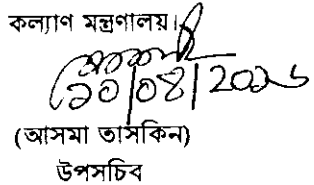 কল্যাণ মন্ত্রণালয়।
২০/০৪/২০২৬
(আসমা তাসকিন)
উপসচিব